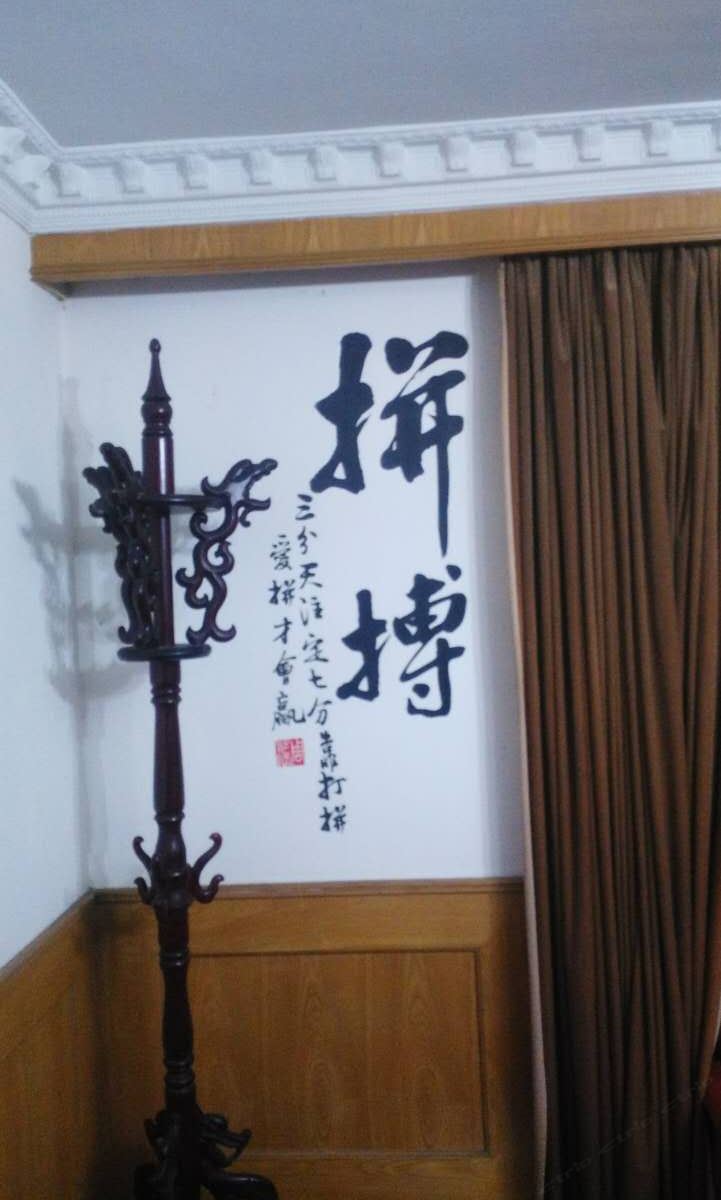 拼搏
三分天注定七分靠打拼
愛拼才會贏